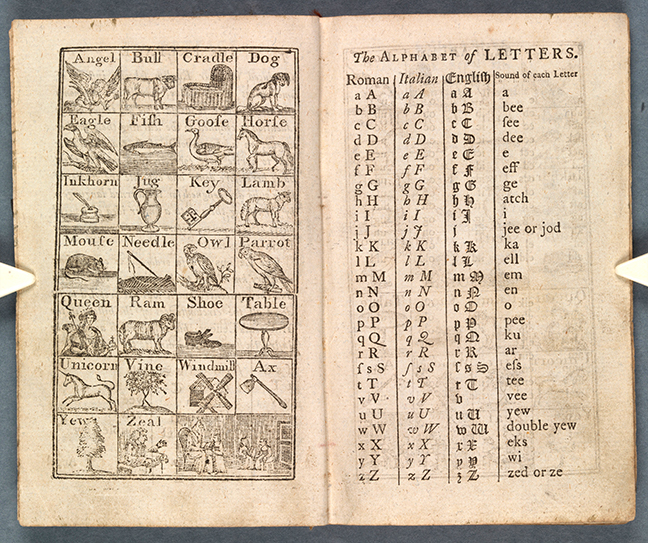 Angel Bull Cradle Dog
Eagle Fiſh Gooſe Horſe
Inkhorn Jug Key Lamb
Mouſe Needle Owl Parrot
Queen Ram Shoe Table
Unicorn Vine Windmill Ax
Yew Zeal
The ALPHABET of LETTERS.
Roman Italian Engliſh Sound of each Letter
a A a A a A a
b B b B b B bee
c C c C c C ſee
d D d D d D dee
e E e E e E e
f F f F f F eff
g G g G g G ge
h H h H h H atch
i I i I i I i
j J j J j jee or jod
k K k K k K ka
l L l L l L ell
m M m M m M em
n N n N n N en
o O o O o O o
p P p P p P pee
q Q q Q q Q ku
r R r R r R ar
ſ s S ſ s S ſ s S eſs
t T t T t T tee
v V v V v vee
u U u U u U yew
w W w W w W double yew
x X x X x X eks
y Y y Y y Y wi
z Z z Z z Z zed or ze